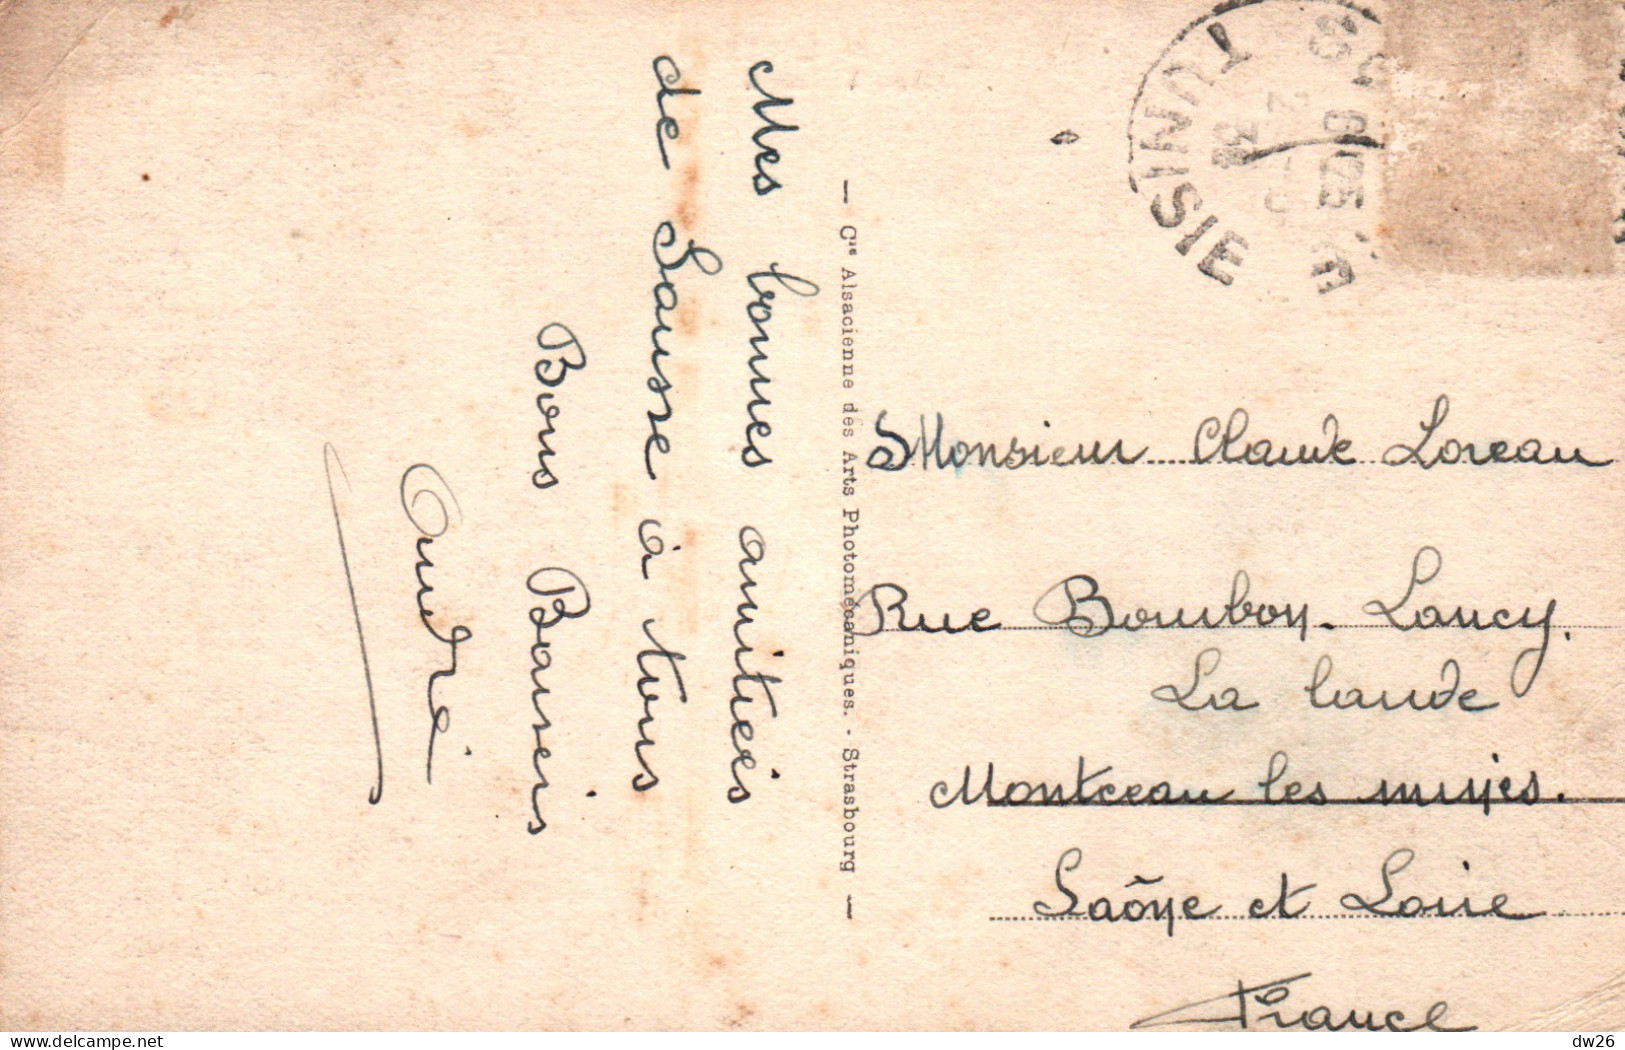 Mes bonnes amitiés
de Sousse à tous
Bons Baisers
André
— Cie Alsacienne des Arts Photomécaniques. - Strasbourg —
TUNISIE
Monsieur Claude Loreau
Rue Bourbon-Lancy.
La Lande
Montceau les mines.
Saône et Loire
France
dw26